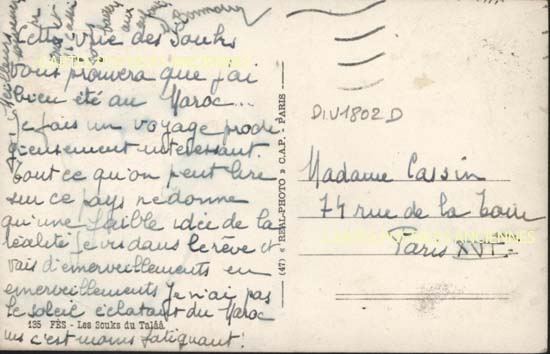 Cette vue des Souks
vous prouvera que j'ai
bien été au Maroc...
je fais un voyage prodi
gieusement intéressant.
Tout ce qu'on peut lire
sur ce pays ne donne
qu'une faible idée de la
réalité je vis dans le rêve et
vais d'émerveillements en
emerveillements je n'ai pas
le soleil éclatant du Maroc
mais c'est moins fatiguant!
135 FÈS - Les Souks du Talâa
(47) « REAL-PHOTO » C.A.P. - PARIS
DIV1802D
Madame Cassin
74 rue de la Tour
Paris XVIe